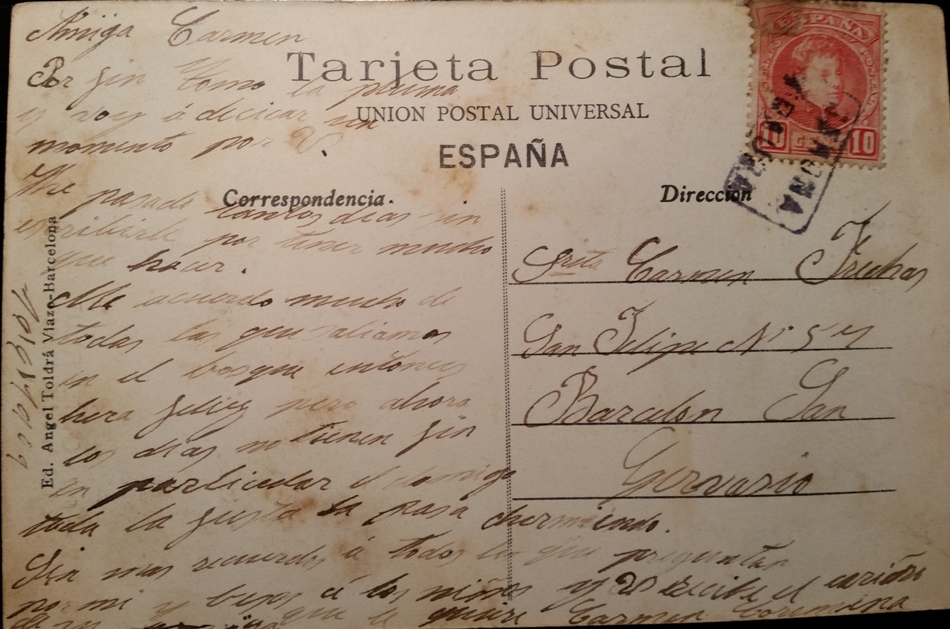 Amiga Carmen
Por fin tomo la pluma
y voy á dedicar un
momento por V.
He pasado tantos dias sin
escribirle por tener mucho
que hacer.
Me acuerdo mucho de
todas las que saliamos
en el bosque entonces
hera feliz pero ahora
los dias no tienen fin
en particular el domingo
toda la fiesta la pasa durmiendo.
Sin mas recuerdos á todos los que preguntan
por mi y besos á los niños y V. recibe el cariño
que le quiere Carmen Coromina
Tarjeta Postal
UNION POSTAL UNIVERSAL
ESPAÑA
Correspondencia.
Dirección
ESPAÑA
10 10
GERONA
Srita Carmen
San Felipe Nº 5
Barcelon San
Gervasio
Ed. Angel Toldrá Viazo-Barcelona